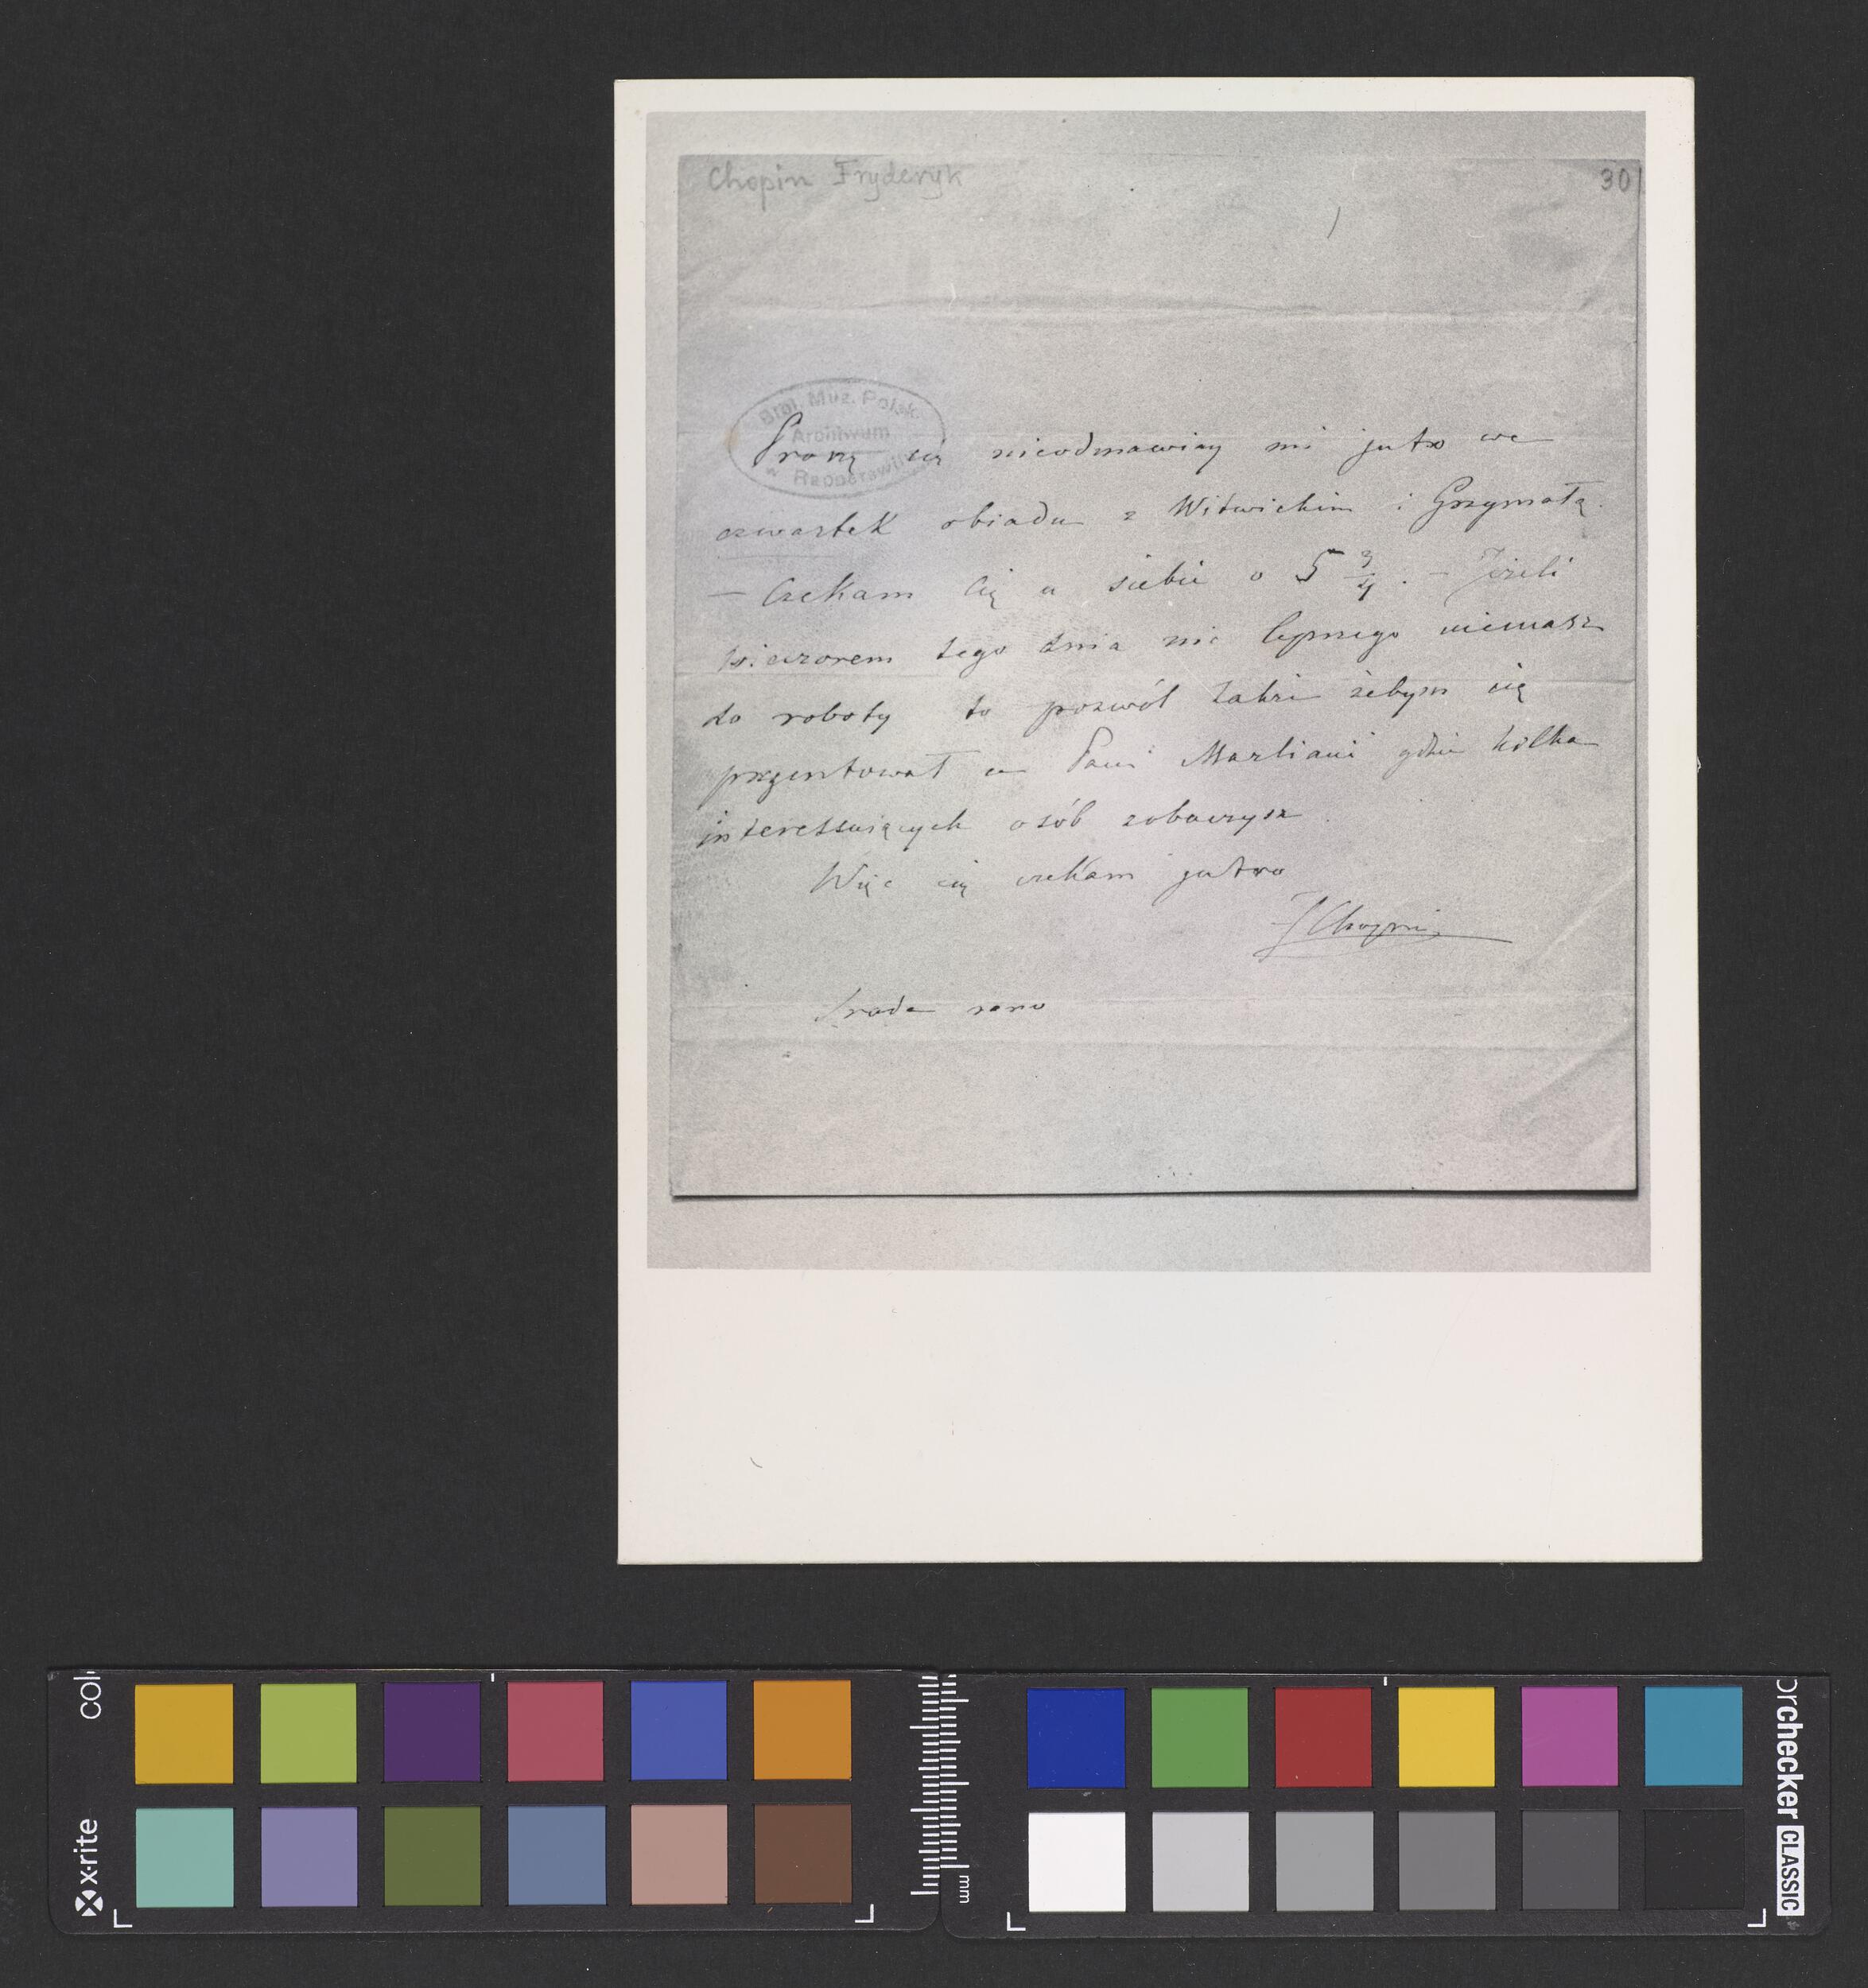 Chopin Fryderyk
30
Bibl. Muz. Polsk.
Archiwum
w Rapperswilu
Proszę cię nieodmawiay mi jutro we
czwartek obiadu z Witwickim i Grzymałą.
— Czekam Cię u siebie o 5 3/4. – Jeżeli
wieczorem tego dnia nic lepszego niemasz
do roboty to pozwól także żebym cię
prezentował u Pani Marliani gdzie kilka
interessuiących osób zobaczysz.
Więc cię czekam jutro
FChopin
Środa rano
x·rite
colorchecker CLASSIC
mm